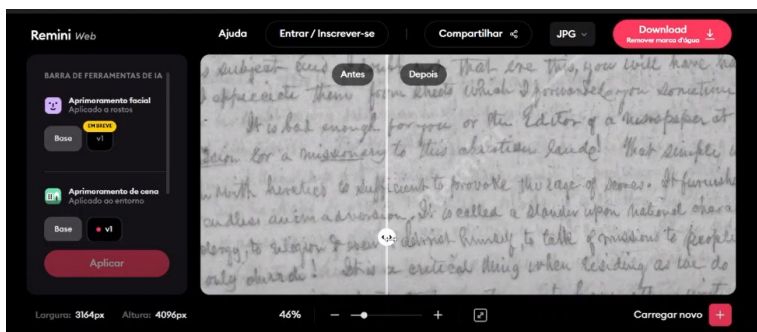 Remini Web
Ajuda
Entrar / Inscrever-se
Compartilhar
JPG
Download
Remover marca d'água
BARRA DE FERRAMENTAS DE IA
Aprimoramento facial
Aplicado a rostos
EM BREVE
Base
v1
Aprimoramento de cena
Aplicado ao entorno
Base
v1
Aplicar
Antes
Depois
subject that ere this, you will have
appreciate them from sheets which I forwarded you sometime
It is bad enough for you or the Editor of a newspaper at
for a missionary to this christian lande! That simple
with heretics is sufficient to provoke the rage of It furnishe
endless animadversion. It is called a slander upon national chara
to religion & himself to talk of missions to people
only church! It is a critical thing when residing as we do
Largura: 3164px
Altura: 4096px
46%
Carregar novo